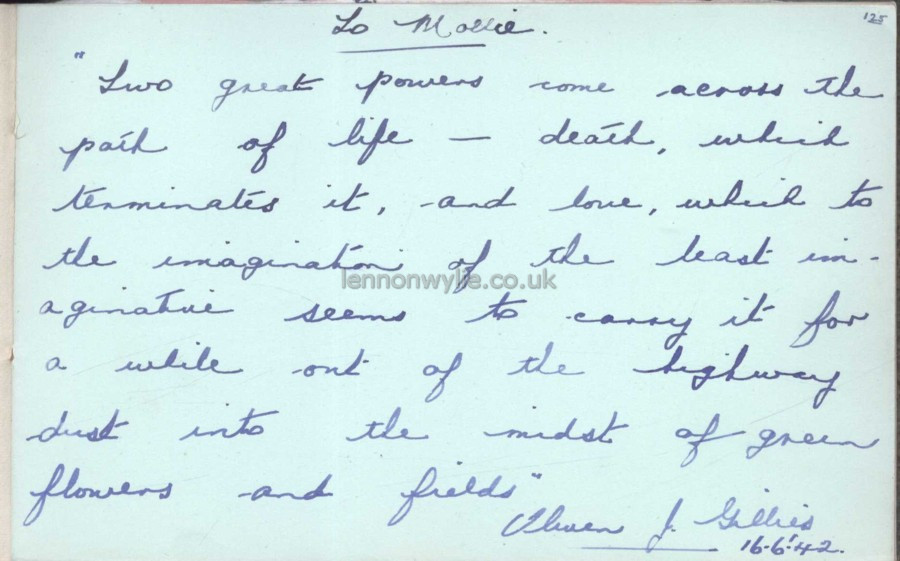 125
To Mollie.
"Two great powers come across the
path of life — death, which
terminates it, and love, which to
the imagination of the least im-
aginative seems to carry it for
a while out of the highway
dust into the midst of green
flowers and fields"
J. Gillies
16-6-42.
lennonwylie.co.uk